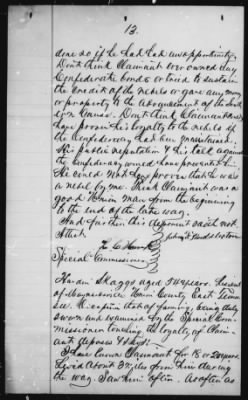 13.
done so if he had had an opportunity.
Don't think Claimant ever owned any
Confederate bonds or tried to sustain
the credit of the rebels or gave any money
or property to the advancement of the
Cause. Don't think Claimant could
have proven his loyalty to the rebels if
the Confederacy had been
His public reputation &
the Confederacy would have prevented it.
He could not have proven that he was
a rebel by me. Think Claimant was a
good Union man from the beginning
to the end of the late war.
And further this deponent saith not.
Attest:
Special Commissioner
Skaggs aged 54 years. Resident
of Maynardville Union County, East Tennes
see. Occupation that of farming, being duly
sworn and examined by the Special Com
missioner touching the loyalty of Claim
ant deposes & says:
I have known Claimant for 18 or 20 years.
Lived about 3½ miles from him during
the war. Saw him often. As often as